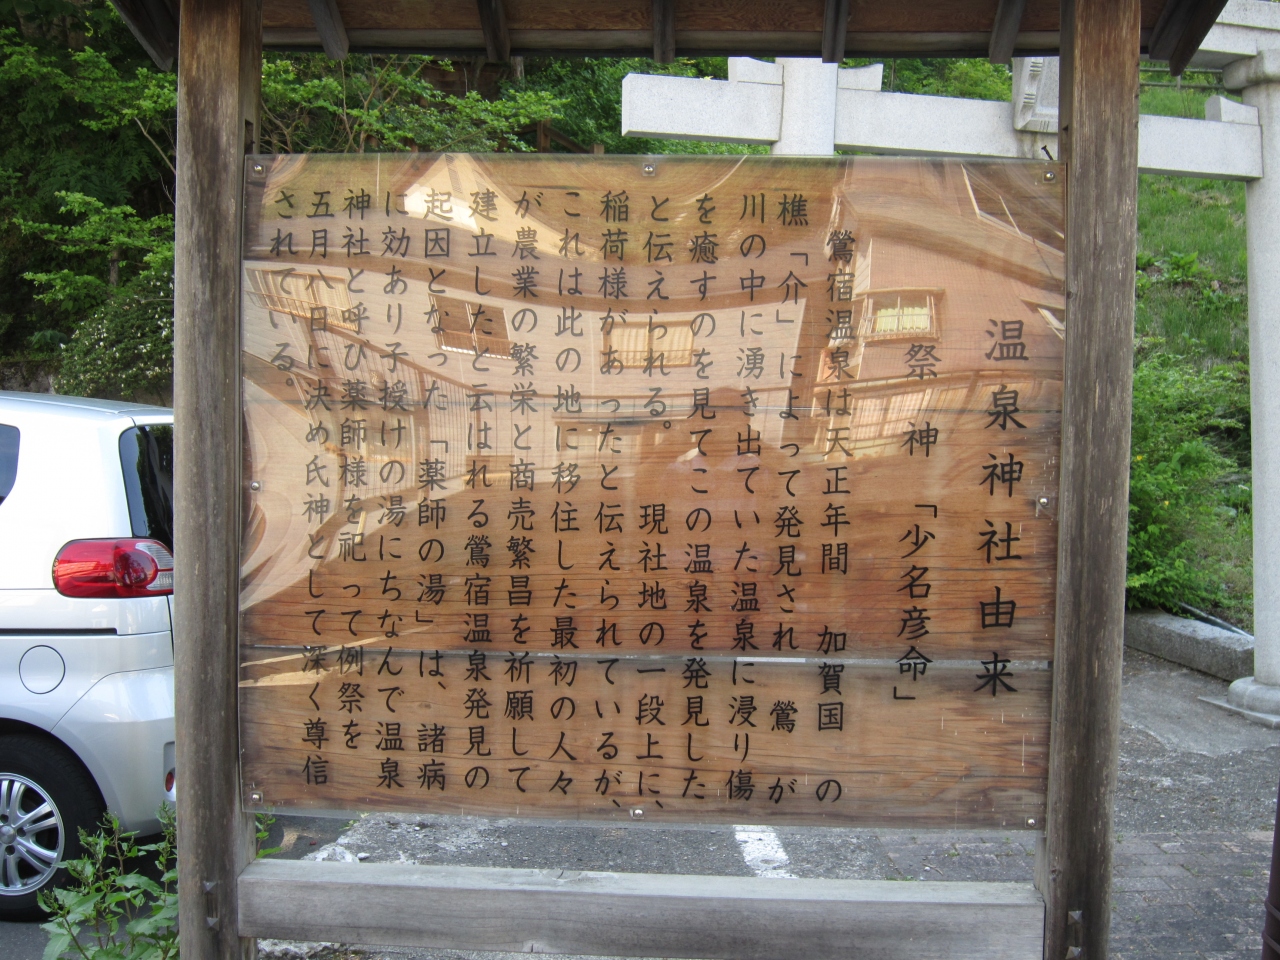 温泉神社由来
祭神「少名彦命」
鶯宿温泉は天正年間　加賀国　の
樵「介」によって発見され　鶯　が
川の中に湧き出ていた温泉に浸り傷
を癒すのを見てこの温泉を発見した
と伝えられる。　現社地の一段上に、
稲荷様があったと伝えられているが、
これは此の地に移住した最初の人々
が農業の繁栄と商売繁昌を祈願して
建立したと云はれる鶯宿温泉発見の
起因となった「薬師の湯」は、諸病
に効あり子授けの湯にちなんで温泉
神社と呼び薬師様を祀って例祭を
五月八日に決め氏神として深く尊信
されている。